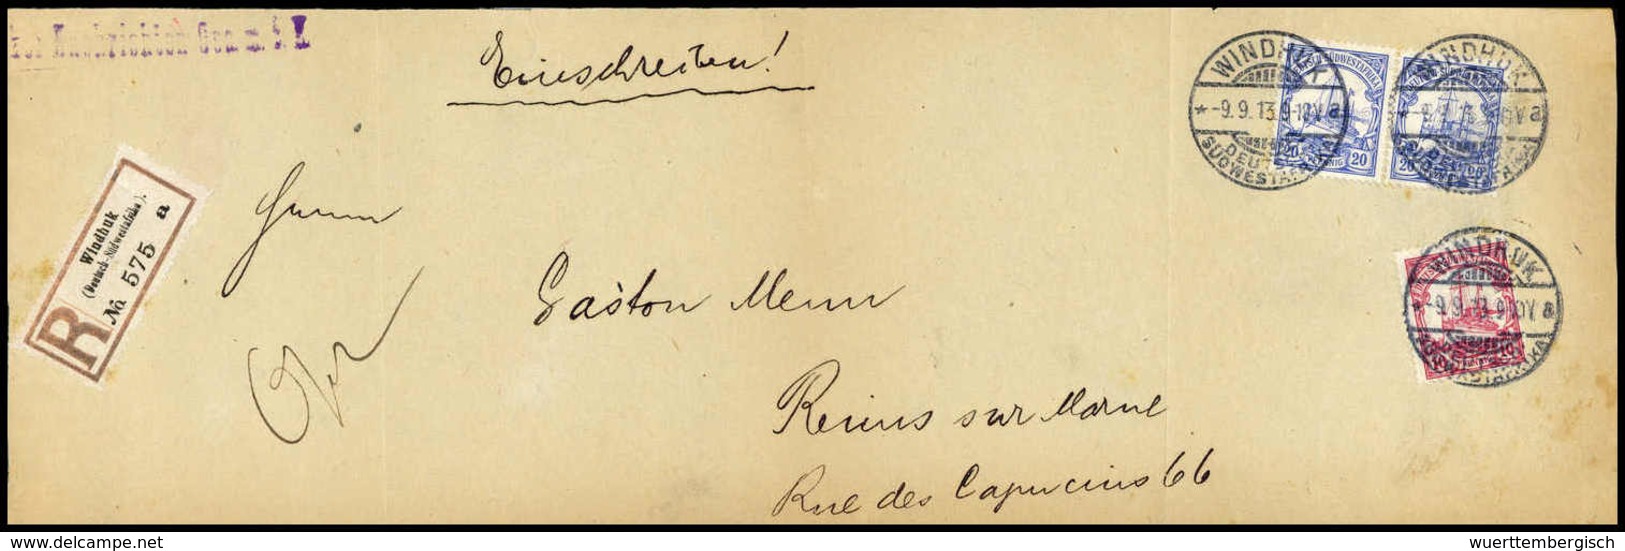 Nachrichten Ges. m. b. H.
Einschreiben!
WINDHUK
-9.9.13.9-10V a
DEUTSCH-
SÜDWESTAFRIKA
DEUTSCH-SÜDWESTAFRIKA
20 PFENNIG 20
WINDHUK
a
20 20
Windhuk
(Deutsch-Südwestafrika).
R No. 575 a
Herrn
Gaston Menn
WINDHUK
-9.9.13.9-10V a
SÜDWESTAFRIKA
10
Reims sur Marne
Rue des Capucins 66
www.wuerttembergisch